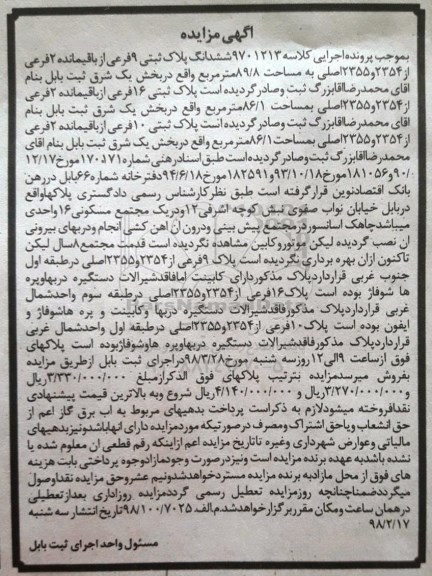 آگهی مزایده
بموجب پرونده اجرایی کلاسه ۹۷۰۱۲۱۳ ششدانگ پلاک ثبتی ۹ فرعی از باقیمانده ۲ فرعی
از ۲۳۵۴ و ۲۳۵۵ اصلی به مساحت ۸۹/۸ مترمربع واقع در بخش یک شرق ثبت بابل بنام
اقای محمدرضا اقابزرگ ثبت و صادر گردیده است پلاک ثبتی ۱۶ فرعی از باقیمانده ۲ فرعی
از ۲۳۵۴ و ۲۳۵۵ اصلی بمساحت ۸۶/۱ مترمربع واقع در بخش یک شرق ثبت بابل بنام
اقای محمدرضا اقابزرگ ثبت و صادر گردیده است پلاک ثبتی ۱۰ فرعی از باقیمانده ۲ فرعی
از ۲۳۵۴ و ۲۳۵۵ اصلی بمساحت ۸۶/۱ مترمربع واقع در بخش یک شرق ثبت بابل بنام اقای
محمدرضا اقابزرگ ثبت و صادر گردیده است طبق اسناد رهنی شماره ۱۷۰۱۷۱ مورخ ۱۲/۱۷
/۹۰ و ۱۸۱۰۵۶ مورخ ۹۳/۱۰/۱۸ و ۱۸۲۵۹۱ مورخ ۹۴/۶/۱۸ دفترخانه شماره ۶۶ بابل در رهن
بانک اقتصادنوین قرار گرفته است طبق نظر کارشناس رسمی دادگستری پلاکها واقع
در بابل خیابان نواب صفوی نبش کوچه اشرفی ۱۲ و در یک مجتمع مسکونی ۱۶ واحدی
میباشد چاهک اسانسور در مجتمع پیش بینی و درون ان اهن کشی انجام و دربهای بیرونی
ان نصب گردیده لیکن موتور و کابین مشاهده نگردیده است قدمت مجتمع ۸ سال لیکن
تاکنون از ان بهره برداری نگردیده است پلاک ۹ فرعی از ۲۳۵۴ و ۲۳۵۵ اصلی در طبقه اول
جنوب غربی قرار دارد پلاک مذکور دارای کابینت اما فاقد شیرالات دستگیره دربها و پره
ها شوفاژ بوده است پلاک ۱۶ فرعی از ۲۳۵۴ و ۲۳۵۵ اصلی در طبقه سوم واحد شمال
غربی قرار دارد پلاک مذکور فاقد شیرالات دستگیره دربها و کابینت و پره ها شوفاژ و
ایفون بوده است پلاک ۱۰ فرعی از ۲۳۵۴ و ۲۳۵۵ اصلی در طبقه اول واحد شمال غربی
قرار دارد پلاک مذکور فاقد شیرالات دستگیره دربها و پره ها و شوفاژ بوده است پلاکهای
فوق از ساعت ۹ الی ۱۲ روز سه شنبه مورخ ۹۸/۳/۲۸ در اجرای ثبت بابل از طریق مزایده
بفروش میرسد مزایده بترتیب پلاکهای فوق الذکر از مبلغ ۳/۳۳۰/۰۰۰/۰۰۰ ریال
و ۳/۲۷۰/۰۰۰/۰۰۰ ریال و ۴/۱۴۰/۰۰۰/۰۰۰ ریال شروع و به بالاترین قیمت پیشنهادی
نقدا فروخته میشود لازم به ذکر است پرداخت بدهیهای مربوط به اب برق گاز اعم از
حق انشعاب و یا حق اشتراک و مصرف در صورتیکه مورد مزایده دارای انها باشد و نیز بدهیهای
مالیاتی و عوارض شهرداری و غیره تا تاریخ مزایده اعم از اینکه رقم قطعی ان معلوم شده یا
نشده باشد به عهده برنده مزایده است و نیز در صورت وجود مازاد وجوه پرداختی بابت هزینه
های فوق از محل مازاد به برنده مزایده مسترد خواهد شد و نیم عشر و حق مزایده نقدا وصول
میگردد ضمنا چنانچه روز مزایده تعطیل رسمی گردد مزایده روز اداری بعد از تعطیلی
در همان ساعت و مکان مقرر برگزار خواهد شد. م. الف ۹۸/۱۰۰/۷۰۲۵ تاریخ انتشار سه شنبه
۹۸/۲/۱۷
مسئول واحد اجرای ثبت بابل